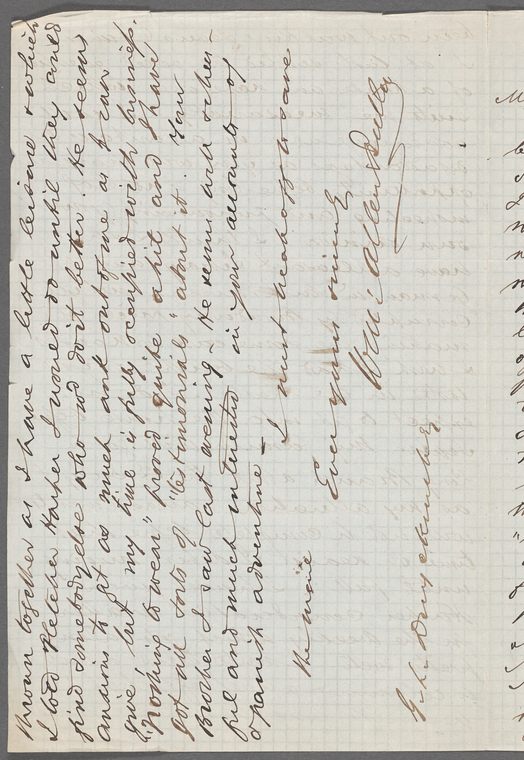 thrown together as I have a little leisure & which
I told Fletcher Harper I would do until they could
find somebody else who wd do it better. He seems
anxious to get as much and out of me as I can
give, but my time is fully occupied with business.
"Nothing to wear" proved quite a hit and I have
got all sorts of "testimonials" about it. Your
Brother I saw last evening – He seems well & cheer-
ful and much interested in your accounts of
Spanish adventure – I must break off to save
the mail
Ever yours sincerely
Wm: Allen Butler
G. L. Duyckinck Esq